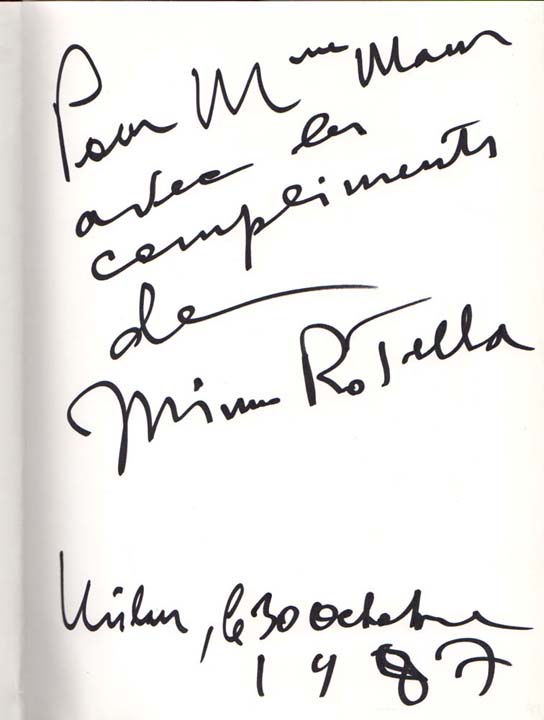 Pour Mme Maur
avec les
compliments
de
Mimmo Rotella
Milan, le 30 octobre
1987